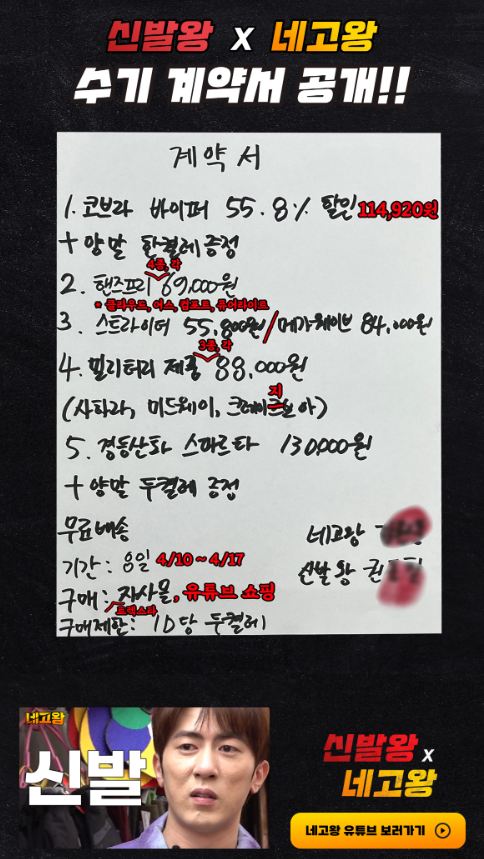 신발왕 x 네고왕
수기 계약서 공개!!
계약서
1. 코브라 바이퍼 55.8% 할인 114,920원
+ 양말 한켤레 증정
4종, 각
2. 핸즈프리 69,000원
* 클라우드, 어스, 컴포트, 퓨어라이트
3. 스트라이더 55,800원 / 메가웨이브 84,000원
3종, 각
4. 밀리터리 제품 88,000원
지
(사하라, 미드웨이, 크레이 아)
5. 경등산화 스마르타 130,000원
+ 양말 두켤레 증정
무료배송
네고왕
기간 : 8일 4/10 ~ 4/17
신발왕 권
구매 : 자사몰, 유튜브 쇼핑
트렉스타
구매제한 : ID당 두켤레
네고왕
신발
신발왕 x
네고왕
네고왕 유튜브 보러가기